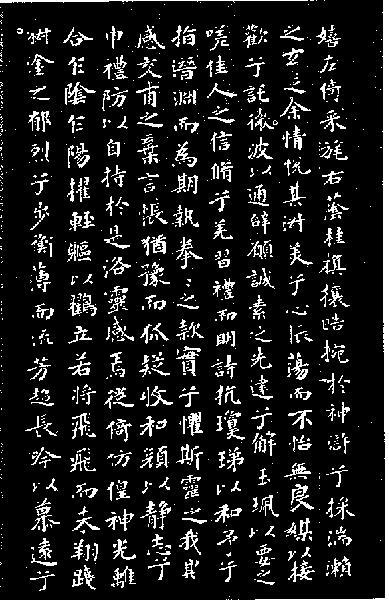 嬉左倚采旄右蔭桂旗攘皓腕於神滸兮採湍瀨
之玄芝余情悅其淑美兮心振蕩而不怡無良媒以接
歡兮託微波以通辭願誠素之先達兮解玉珮以要之
嗟佳人之信脩兮羌習禮而明詩抗瓊珶以和予兮
指潛淵而為期執拳〻之款實兮懼斯靈之我欺
感交甫之棄言悵猶豫而狐疑收和顏以靜志兮
申禮防以自持於是洛靈感焉徙倚仿偟神光離
合乍陰乍陽擢輕軀以鶴立若將飛飛而未翔踐
椒塗之郁烈兮步衡薄而流芳超長吟以慕遠兮